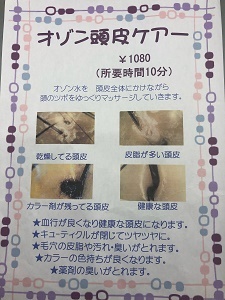 オゾン頭皮ケアー
￥1080
(所要時間10分)
オゾン水を 頭皮全体にかけながら
頭のツボをゆっくりマッサージしていきます。
乾燥してる頭皮
皮脂が多い頭皮
カラー剤が残ってる頭皮
健康な頭皮
★血行が良くなり健康な頭皮になります。
★キューティクルが閉じてツヤツヤに。
★毛穴の皮脂や汚れ・臭いがとれます。
★カラーの色持ちが良くなります。
★薬剤の臭いがとれます。